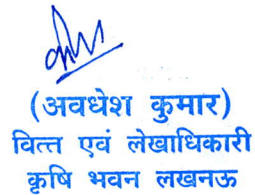 (अवधेश कुमार)
वित्त एवं लेखाधिकारी
कृषि भवन लखनऊ